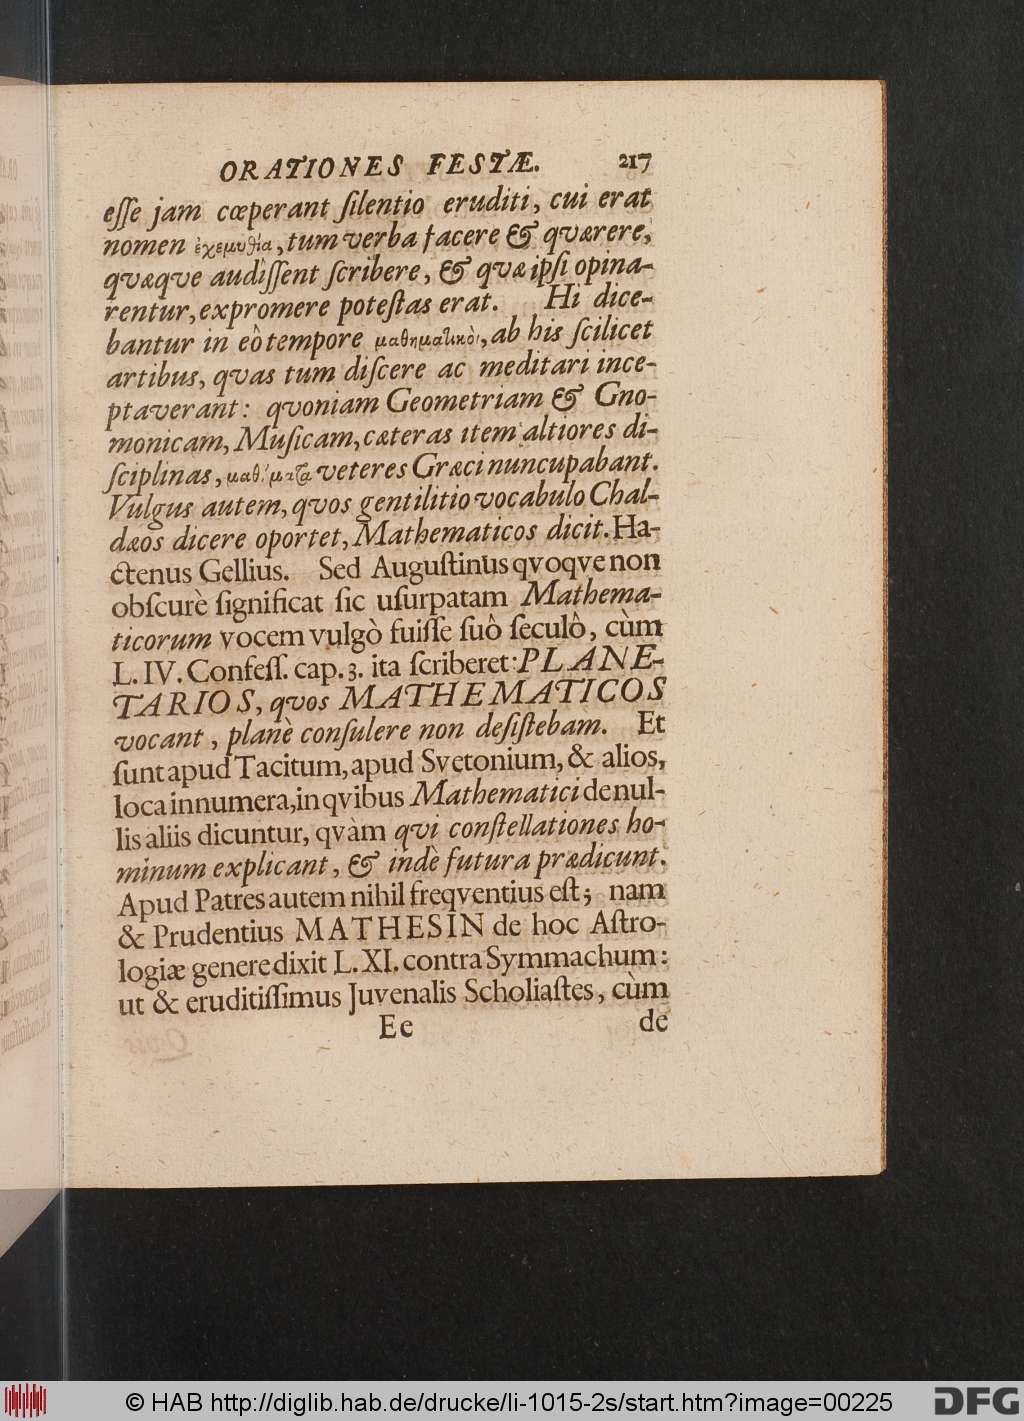 ORATIONES FESTÆ. 217
eſſe jam cœperant ſilentio eruditi, cui erat
nomen ἐχεμυθία, tum verba facere & qværere,
qvæqve audîſſent ſcribere, & qvæ ipſi opina-
rentur, expromere poteſtas erat. Hi dice-
bantur in eô tempore μαθηματικοὶ, ab his ſcilicet
artibus, qvas tum diſcere ac meditari ince-
ptaverant: qvoniam Geometriam & Gno-
monicam, Muſicam, cæteras item altiores di-
ſciplinas, μαθήματα veteres Græci nuncupabant.
Vulgus autem, qvos gentilitio vocabulo Chal-
dæos dicere oportet, Mathematicos dicit. Ha-
ctenus Gellius. Sed Auguſtinus qvoqve non
obſcurè ſignificat ſic uſurpatam Mathema-
ticorum vocem vulgò fuiſſe ſuô ſeculô, cùm
L. IV. Confeſſ. cap. 3. ita ſcriberet: PLANE-
TARIOS, qvos MATHEMATICOS
vocant, planè conſulere non deſiſtebam. Et
ſunt apud Tacitum, apud Svetonium, & alios,
loca innumera, in qvibus Mathematici de nul-
lis aliis dicuntur, qvàm qvi conſtellationes ho-
minum explicant, & indè futura prædicunt.
Apud Patres autem nihil freqventius eſt; nam
& Prudentius MATHESIN de hoc Aſtro-
logiæ genere dixit L. XI. contra Symmachum:
ut & eruditiſſimus Juvenalis Scholiaſtes, cùm
Ee de
© HAB http://diglib.hab.de/drucke/li-1015-2s/start.htm?image=00225 DFG